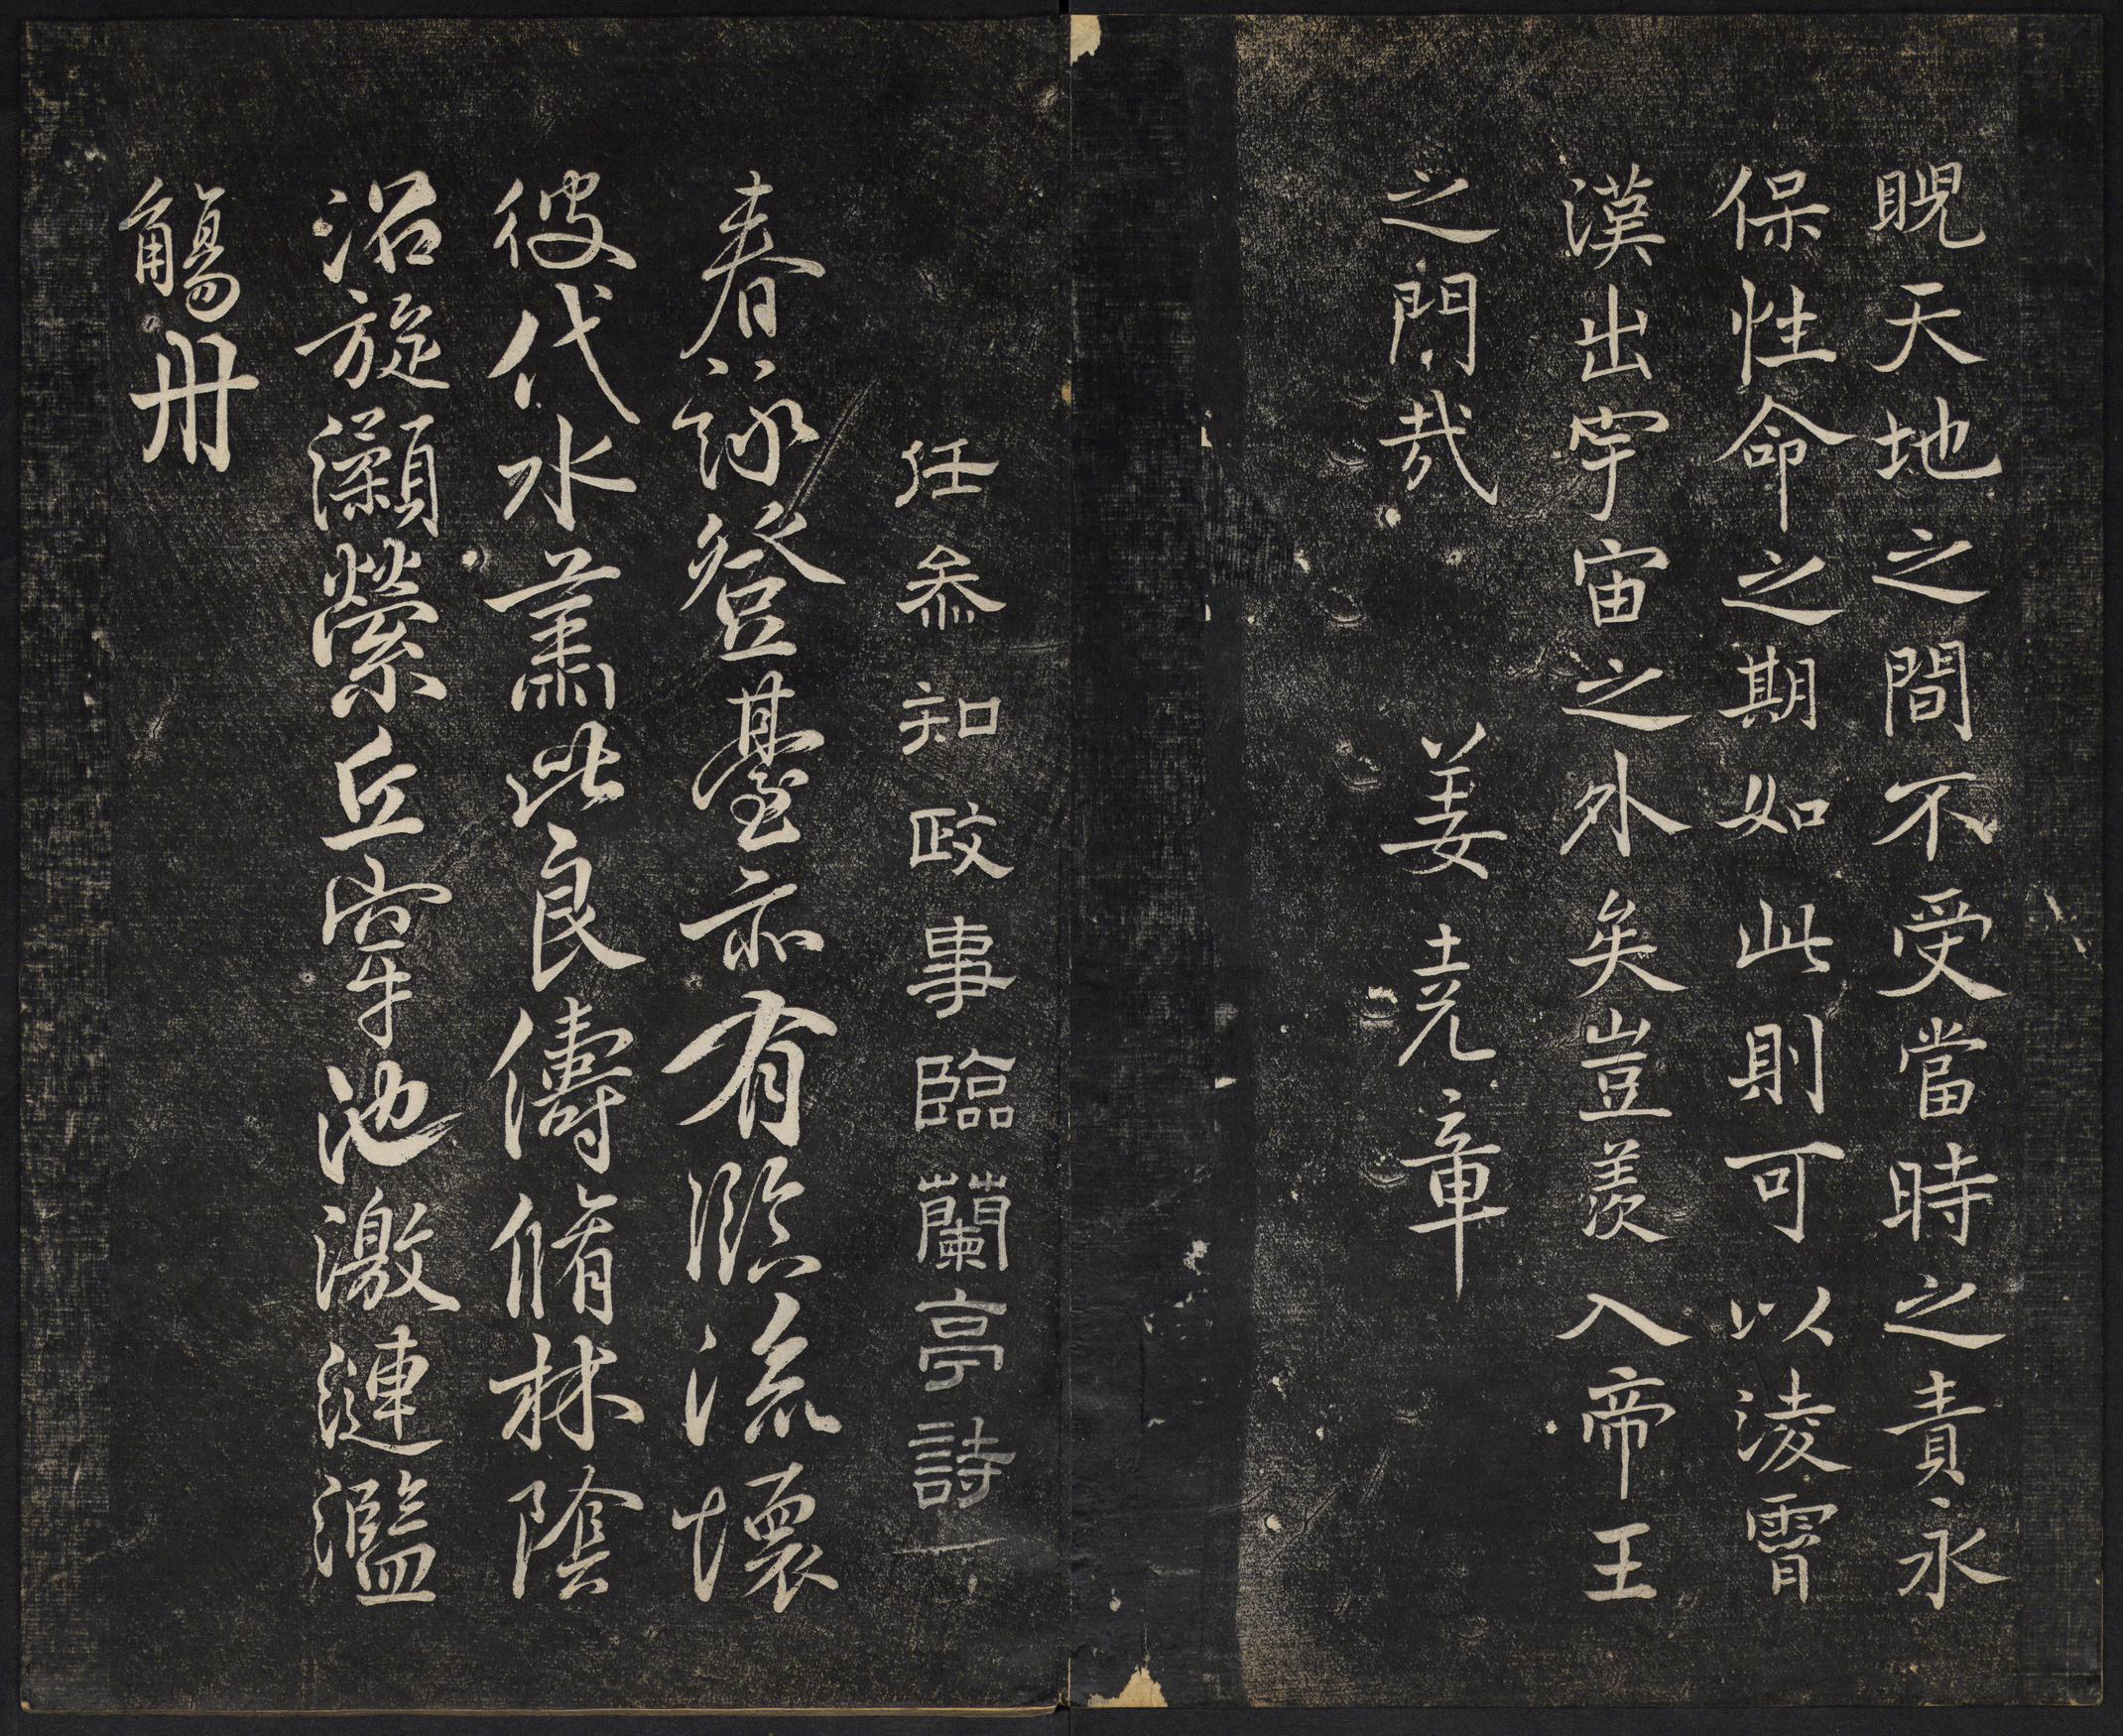 睨天地之間不受當時之責永
保性命之期如此則可以淩霄
漢出宇宙之外矣豈羨入帝王
之門哉　姜尭章
任叅知政事臨蘭亭詩
春詠登臺亦有臨流懷
彼代水肅此良儔脩林陰
沼旋瀨縈丘穿池激漣濫
觴卌